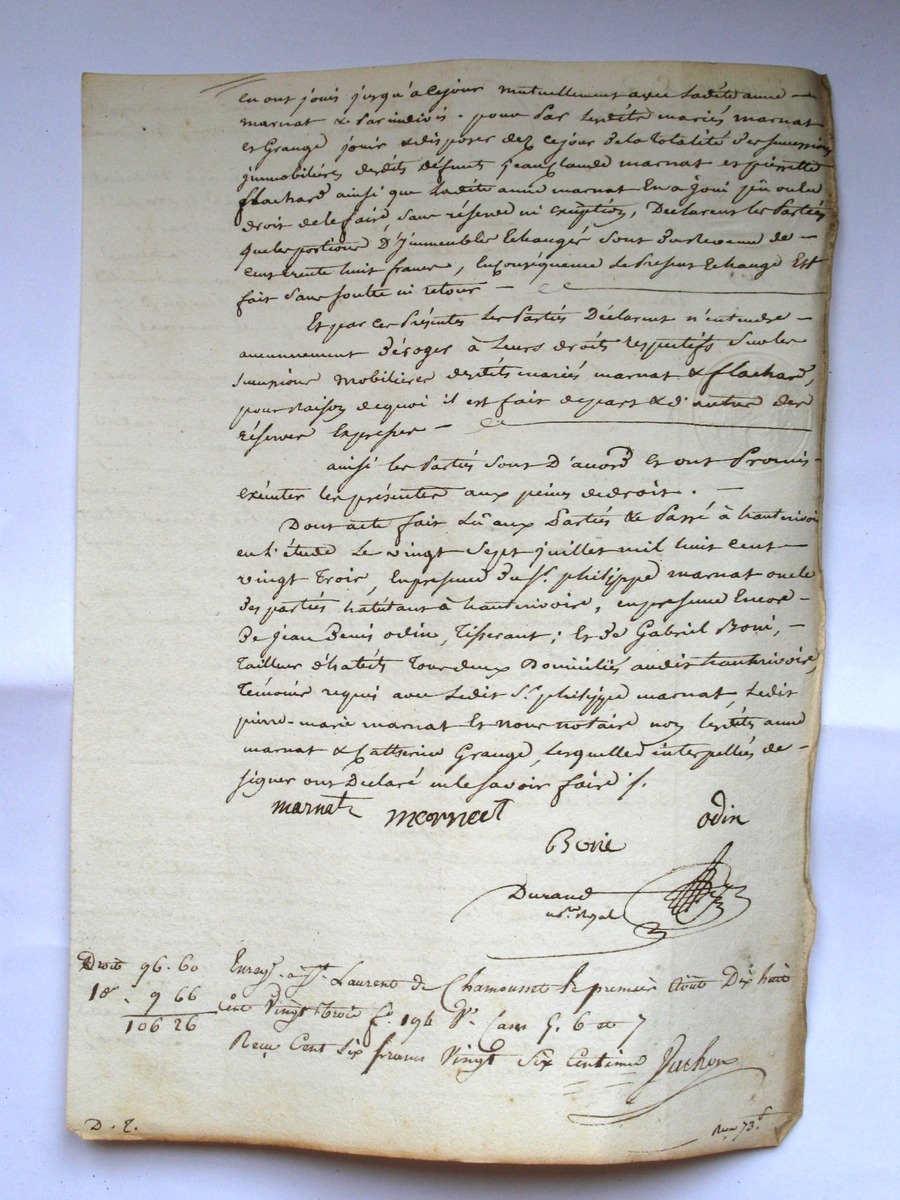 en ont jouis jusqu'à ce jour mutuellement avec ladite anne
marnat & Par indivis. pour Par lesdits mariés marnat
et Grange jouir & disposer dez ce jour de la totalité des successions
immobiliéres desdits défunts jean claude marnat et pierrette
flachard ainsi que ladite anne marnat En a joui ou eu
droit de le faire sans réserve ni exception, Déclarent les Parties
que les portions D'jmmeubles Echangés sont du Revenu de
cent trente huit francs, En conséquence le Present Echange Est
fait sans soulte ni retour
Et par ces Présentes les Parties Déclarent n'entendre
aucunnement déroger à Leurs droits respectifs sur les
successions mobiliéres desdits mariés marnat & flachard,
pour raison de quoi il est fait de part & d'autre des
réserves Expresses
ainsi les Parties sont D'accord et ont Promis
exécuter les présentes aux peines de droit.
Dont acte fait Lû aux Parties & Passé à hauterivoire
en l'étude Le vingt sept juillet mil huit cent
vingt trois, En présence du Sr. philippe marnat oncle
des parties habitant à hauterivoire, en presence Encore
de jean Denis odin, Tisserant; Et de Gabriel Boni,
Tailleur d'habits Tous deux Domiciliés audit hauterivoire,
Témoins requis avec Ledit Sr. philippe marnat, Ledit
pierre-marie marnat Et nous notaire non lesdits anne
marnat & Catherine Grange, lesquelles interpellées de
signer ont Déclaré ne le savoir faire /.
marnat marnat
odin
Bonie
Durand
nore. Royal
Droit 96. 60 Enregé. à St. Laurent de Chamousset le premier août Dix huit
10e. 9 66 Cent Vingt Trois fo. 194 Vo. Cases 5. 6 et 7
106 26 Reçu Cent Six francs Vingt Six Centimes
D. E.
Reçu 73 f